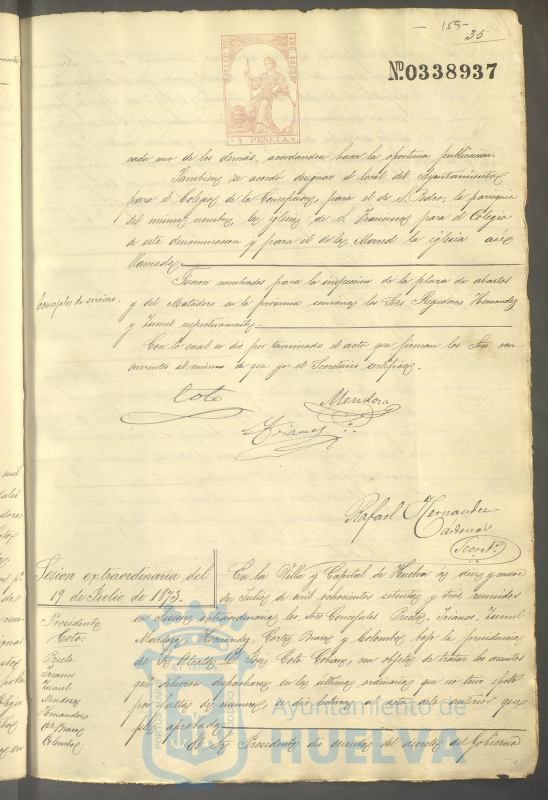 155
35
SELLO 10º AÑO 1873
1 PESETA
Nº. 0338937
cada uno de los demás, acordandose hacer la oportuna publicacion.
Tambien se acordó designar el local del Ayuntamiento
para el Colegio de la Concepcion, para el de S. Pedro, la parroquia
del mismo nombre, la iglesia de S. Francisco para el Colegio
de esta denominacion y para el de la Merced la iglesia así
llamada.
Concejales de servicio.
Fueron nombrados para la inspeccion de la plaza de abastos
y del Matadero en la próxima semana los Sres Regidores Hernandez
y Zumel respectivamente.
Con lo cual se dió por terminado el acto que firman los Sres con-
currentes al mismo de que yo el Secretario certifico.
Coto
Mendoza
Trianes
Rafael Hernandez
Cardenal
Secretº
Sesion extraordinaria del
19 de Julio de 1873.
Presidente
Coto
Prieto
Trianes
Zumel
Mendoza
Hernandez
Colombo
En la Villa y Capital de Huelva á diez y nueve
de Julio de mil ochocientos setenta y tres reunidos
en sesion extraordinaria los Sres Concejales Prieto, Trianes, Zumel
Mendoza, Hernandez, Cortes, Bravo y Colombo, bajo la presidencia
del Sr. Alcalde D. Coto, con objeto de tratar los asuntos
que debieron despacharse en la última ordinaria que no tuvo efecto
por faltas de número, se dió lectura al acta del anterior que
fué aprobada.
El Sr Presidente dió cuenta del decreto del Gobierno
Ayuntamiento de
HUELVA